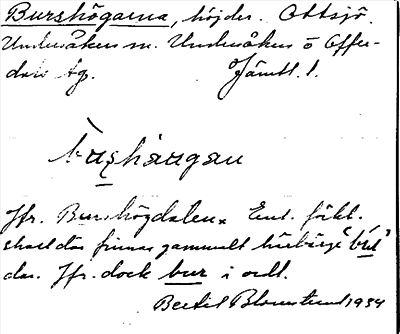 Burshögarna, höjder. Ottsjö.
Undersåkers sn. Undersåkers o Offer-
dals tg. Jämtl. l.
bu̱ʂhàugan
Jfr. Burshögdalen. Enl. förkl.
skall där finnas gammalt "bur"
där. Jfr. dock bur i ortl.
Bertil Blomstrand 1934